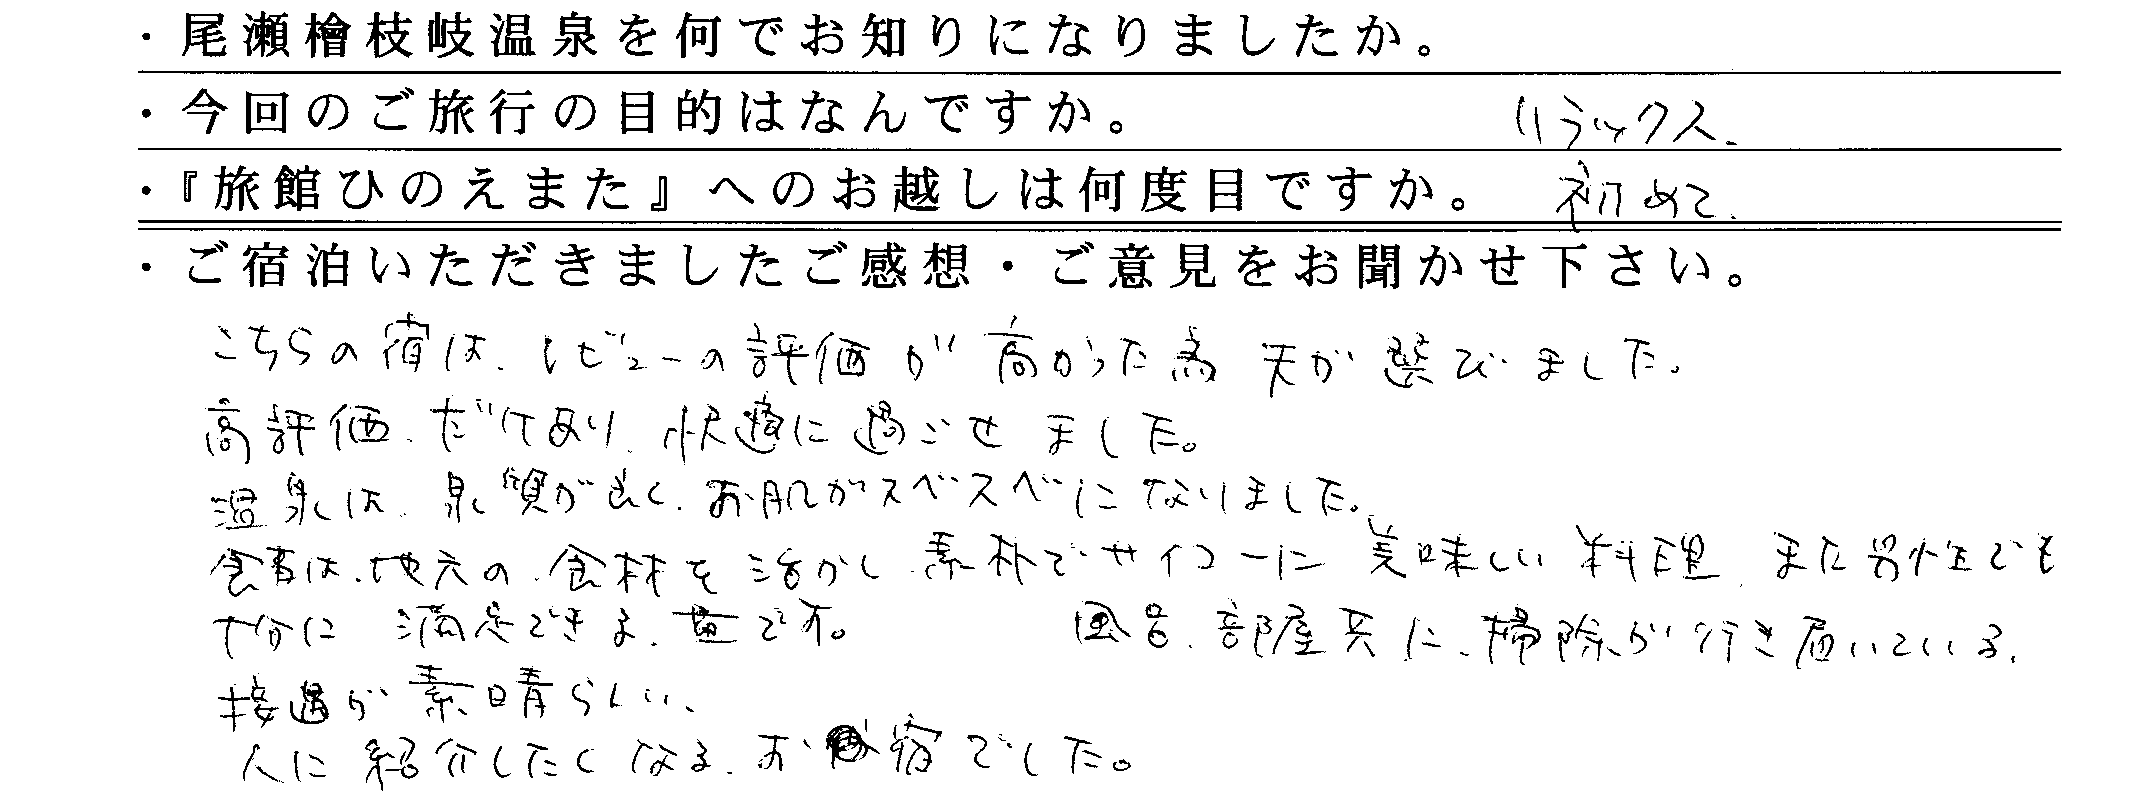 ・尾瀬檜枝岐温泉を何でお知りになりましたか。
・今回のご旅行の目的はなんですか。 リラックス、
・『旅館ひのえまた』へのお越しは何度目ですか。 初めて、
・ご宿泊いただきましたご感想・ご意見をお聞かせ下さい。
こちらの宿は、レビューの評価が高かった為 夫が選びました。
高評価、だけあり、快適に過ごせました。
温泉は、泉質が良く、お肌がスベスベになりました。
食事は、地元の、食材を活かし、素朴でサイコーに美味しい料理、また男性でも
十分に 満足できる、量です。 風呂、部屋共に、掃除が行き届いている、
接遇が素晴らしい、
人に紹介したくなる、お宿でした。